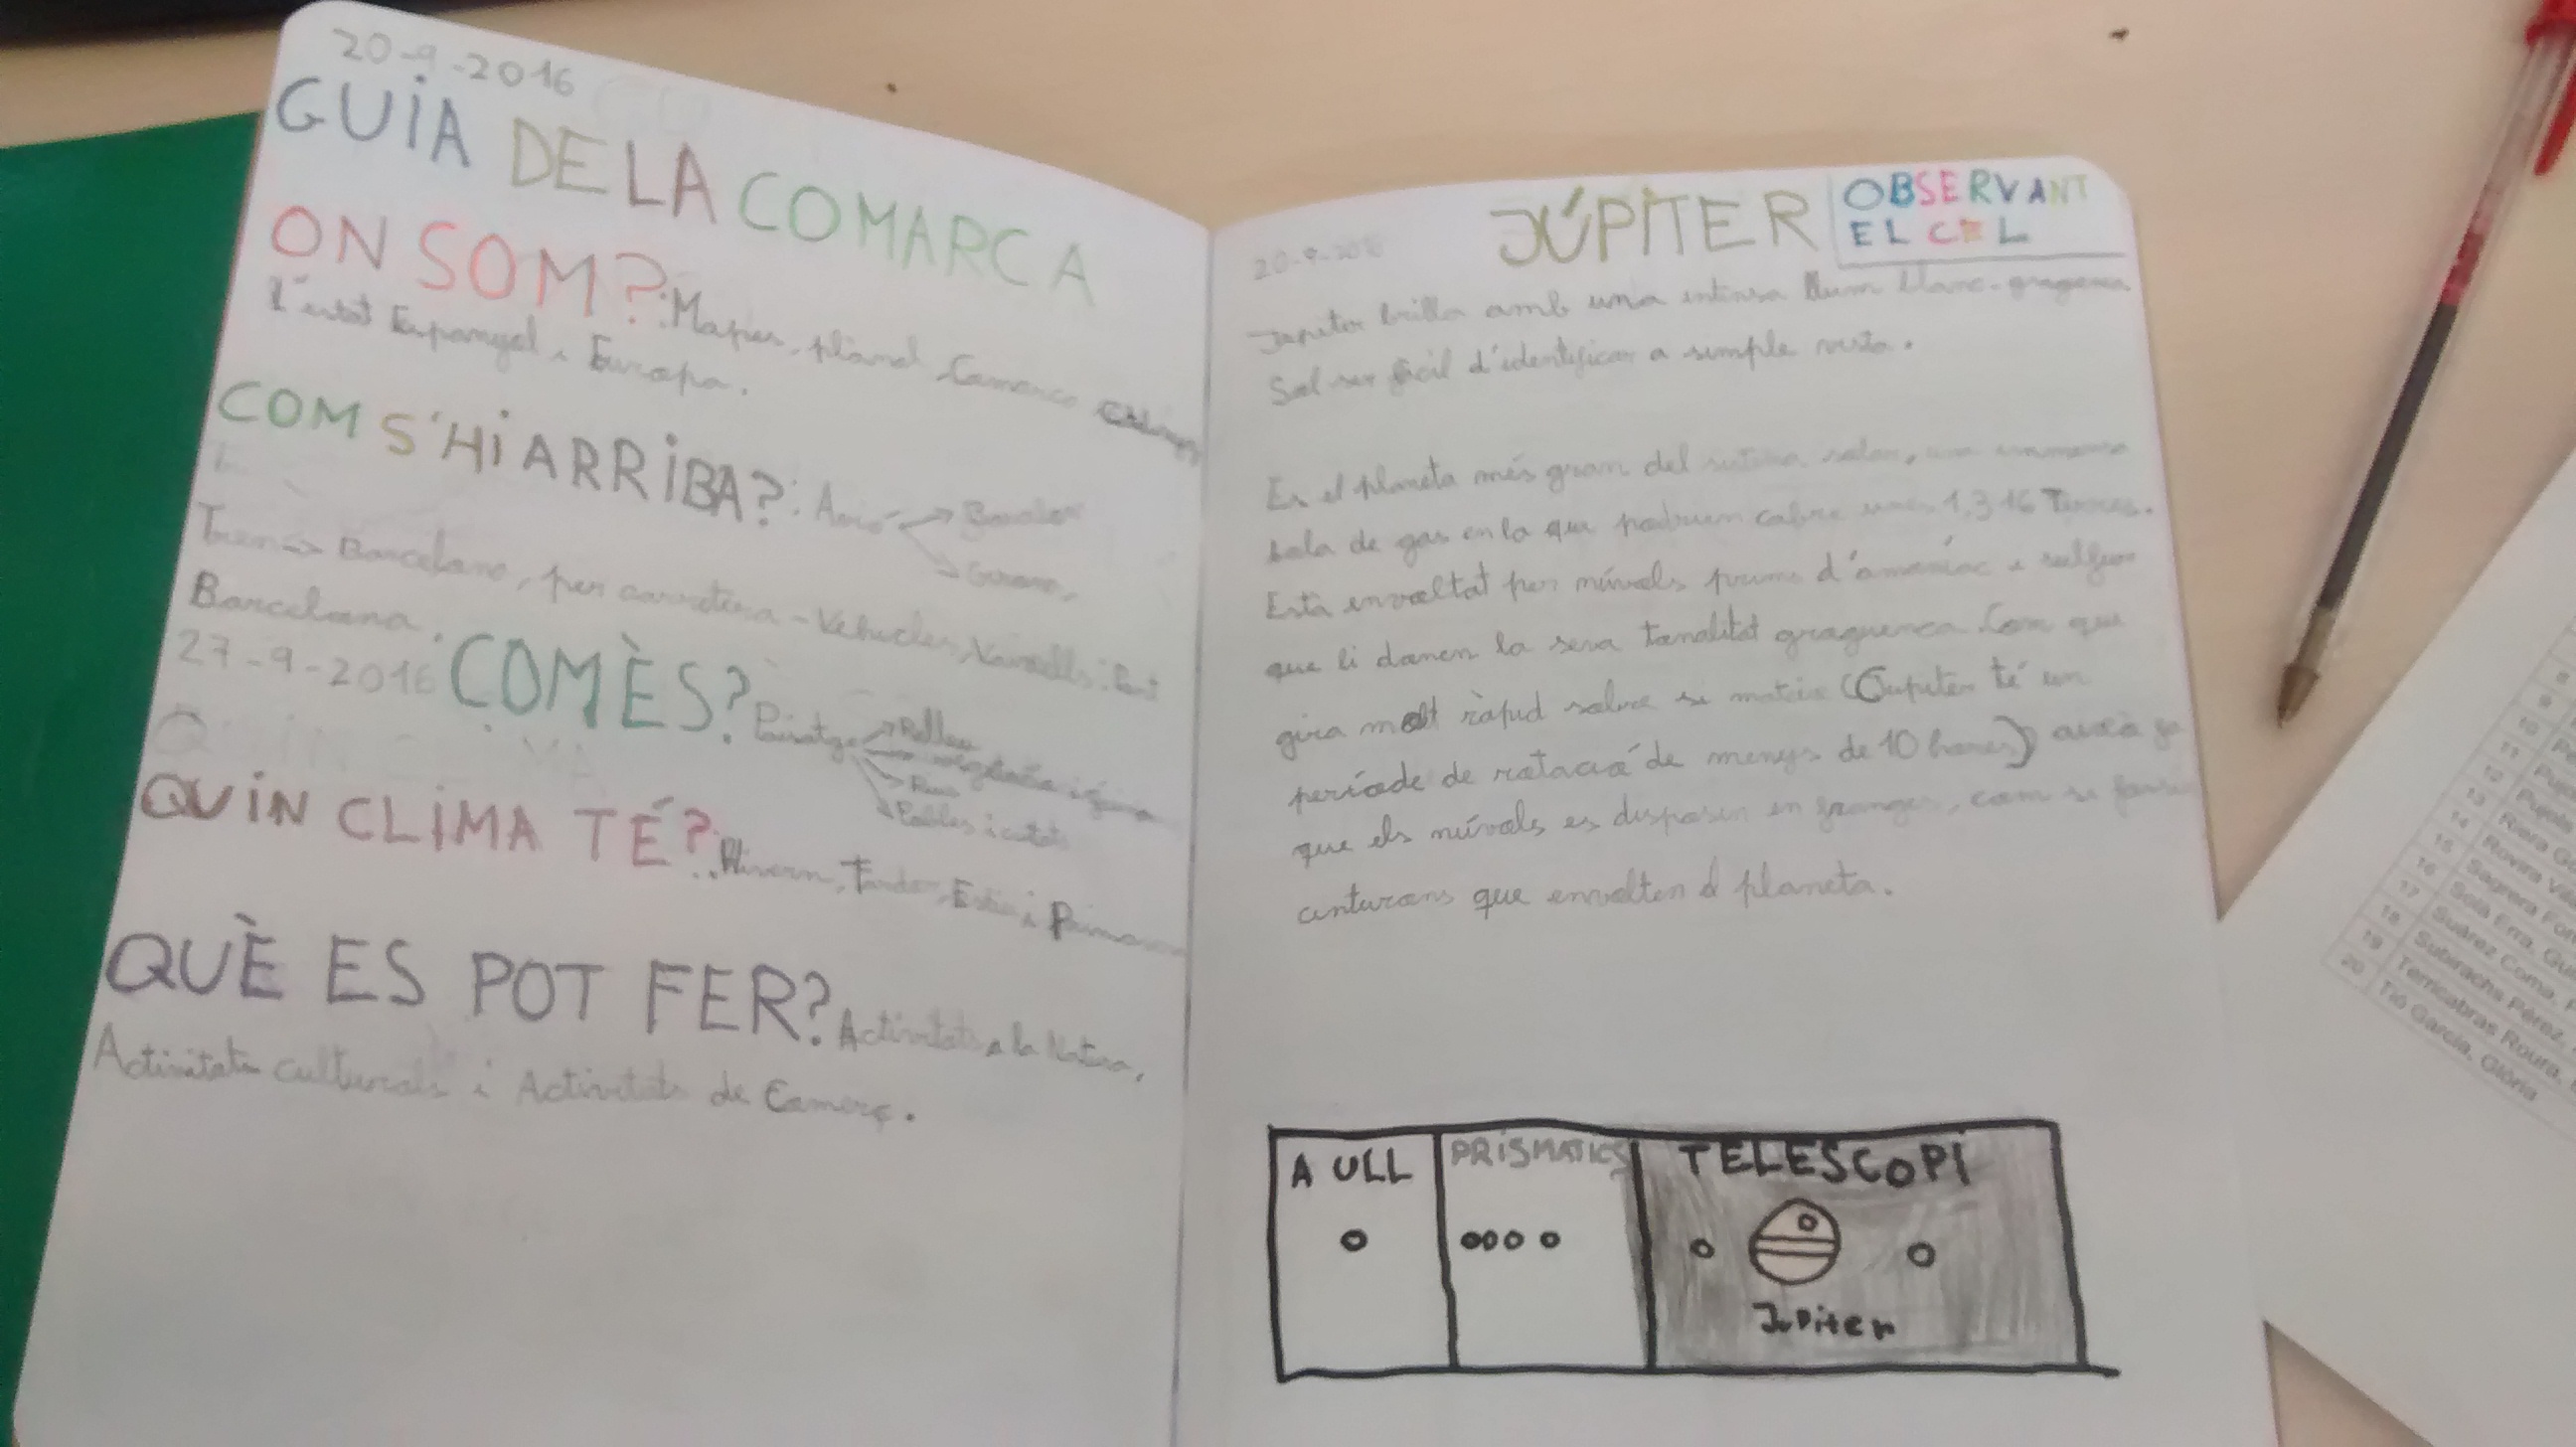 20-9-2016
GUIA DE LA COMARCA
ON SOM?: Mapes, plànol, Comarca
L'estat Espanyol i Europa.
COM S'HI ARRIBA?: Avió → Barcelona
→ Girona,
Tren → Barcelona, per carretera - Vehicles, Vaixells: Port
Barcelona.
27-9-2016 COM ÈS? Paisatge → Relleu
→ vegetació i fauna
→ Rius
→ Pobles i ciutats
QUIN CLIMA TÉ?: Hivern, Tardor, Estiu i Primavera
QUÈ ES POT FER? Activitats a la Natura,
Activitats culturals i Activitats de Comerç.
20-9-2016 JÚPITER OBSERVANT
EL CEL
Jupiter brilla amb una intensa llum blanc-groguenca
Sol ser fàcil d'identificar a simple vista.
Es el planeta més gran del sistema solar, una immensa
bola de gas en la que podrien cabre unes 1.316 Terres.
Està envoltat per núvols prims d'amoníac i sulfurs
que li donen la seva tonalitat groguenca. Com que
gira molt ràpid sobre si mateix (Jupiter té un
període de rotació de menys de 10 hores) això fa
que els núvols es disposin en franges, com si fossin
cinturons que envolten el planeta.
A ULL PRISMATICS TELESCOPI
Jupiter
9
10
11
12
13
14
15
16
17 Solà Erra, Gui
18 Suárez Coma,
19 Subirachs Pérez,
20 Terricabras Roura,
Tió García, Glòria